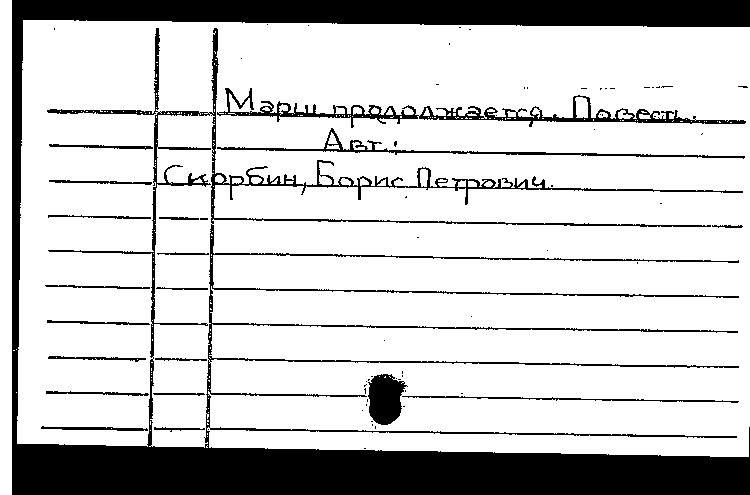 Марш продолжается. Повесть.
Авт.:
Скорбин, Борис Петрович.